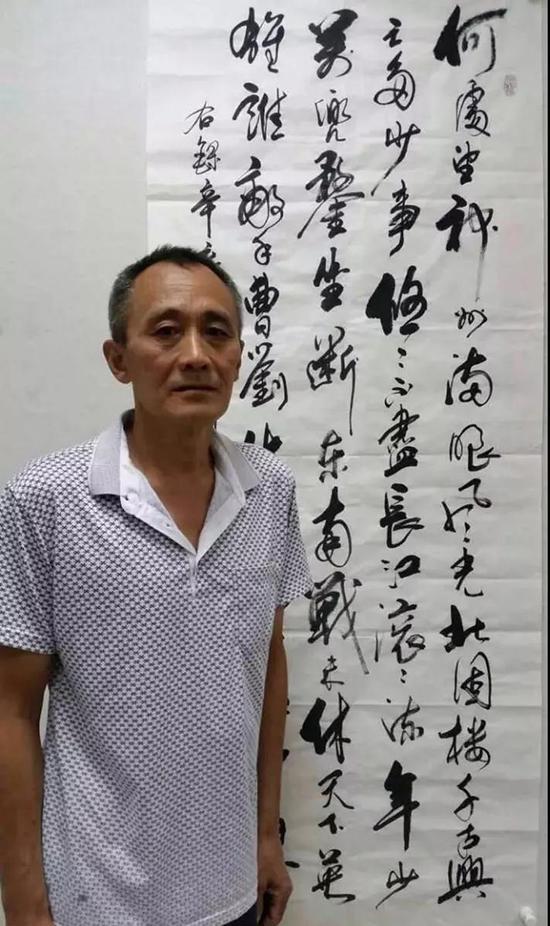 何處望神州滿眼風光北固楼千古興
亡多少事悠〻不盡長江滚〻流年少
萬兜鍪坐断东南戰未休天下英
雄誰敵手曹劉
右錄辛